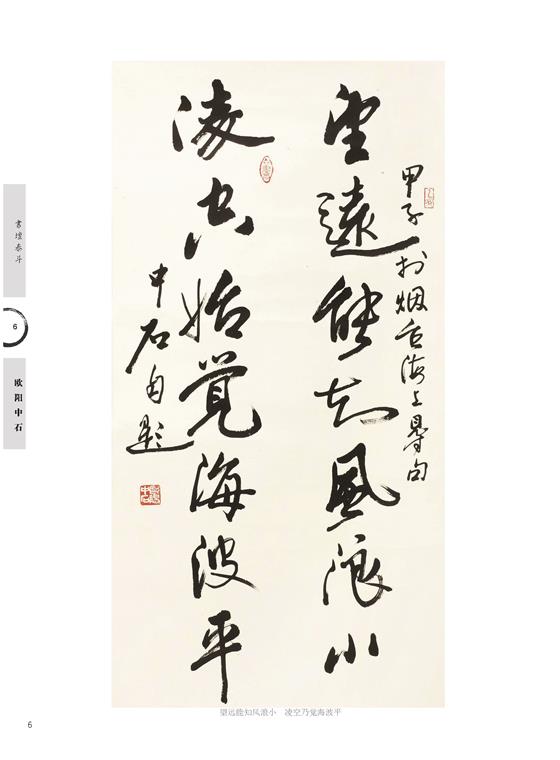 甲子於烟台海上得句
望遠能知風浪小
凌空始覺海波平
中石自題
書壇泰斗
6
欧阳中石
望远能知风浪小　凌空乃觉海波平
6